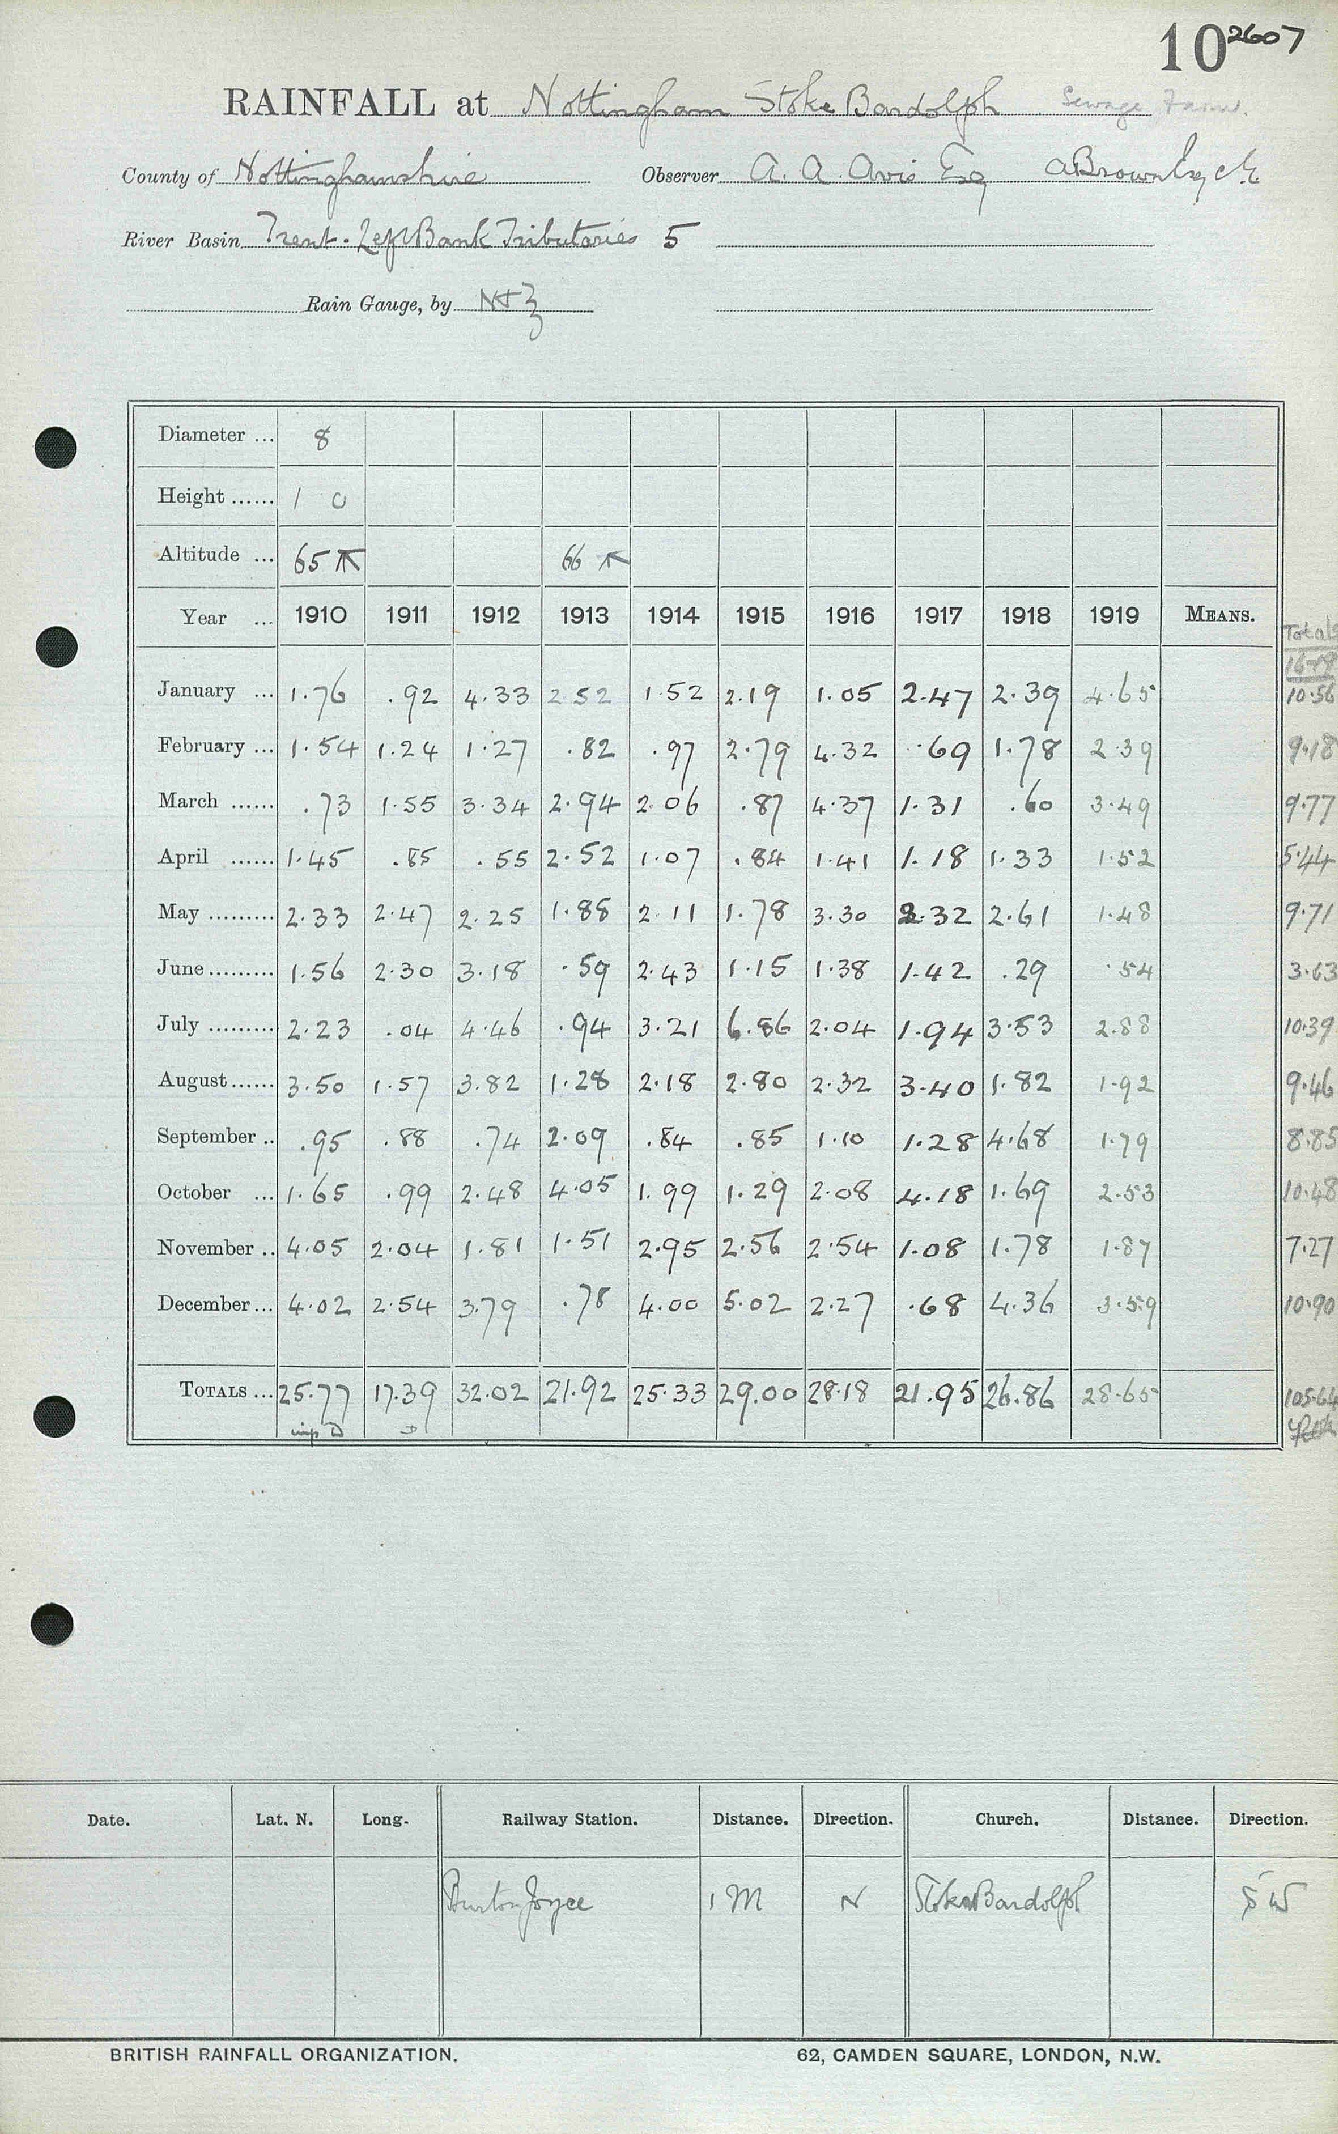 10 2607
RAINFALL at Nottingham Stoke Bardolph Sewage Farm.
County of Nottinghamshire Observer A. A. Avis Esq
River Basin Trent. Left Bank Tributaries 5
Rain Gauge, by N+Z
Diameter ... 8
Height ...... 1 0
Altitude ... 65 66
Year ... 1910 1911 1912 1913 1914 1915 1916 1917 1918 1919 MEANS. Totals
16-19
January ... 1.76 .92 4.33 2.52 1.52 2.19 1.05 2.47 2.39 4.65 10.56
February ... 1.54 1.24 1.27 .82 .97 2.79 4.32 .69 1.78 2.39 9.18
March ...... .73 1.55 3.34 2.94 2.06 .87 4.37 1.31 .60 3.49 9.77
April ...... 1.45 .85 .55 2.52 1.07 .84 1.41 1.18 1.33 1.52 5.44
May ......... 2.33 2.47 2.25 1.88 2.11 1.78 3.30 2.32 2.61 1.48 9.71
June ......... 1.56 2.30 3.18 .59 2.43 1.15 1.38 1.42 .29 .54 3.63
July ......... 2.23 .04 4.46 .94 3.21 6.86 2.04 1.94 3.53 2.88 10.39
August ...... 3.50 1.57 3.82 1.28 2.18 2.80 2.32 3.40 1.82 1.92 9.46
September .. .95 .88 .74 2.09 .84 .85 1.10 1.28 4.68 1.79 8.85
October ... 1.65 .99 2.48 4.05 1.99 1.29 2.08 4.18 1.69 2.53 10.48
November .. 4.05 2.04 1.81 1.51 2.95 2.56 2.54 1.08 1.78 1.87 7.27
December ... 4.02 2.54 3.79 .78 4.00 5.02 2.27 .68 4.36 3.59 10.90
TOTALS ... 25.77 17.39 32.02 21.92 25.33 29.00 28.18 21.95 26.86 28.65 105.64
imp D D
Date. Lat. N. Long. Railway Station. Distance. Direction. Church. Distance. Direction.
Burton Joyce 1 M N Stoke Bardolph S W
BRITISH RAINFALL ORGANIZATION. 62, CAMDEN SQUARE, LONDON, N.W.